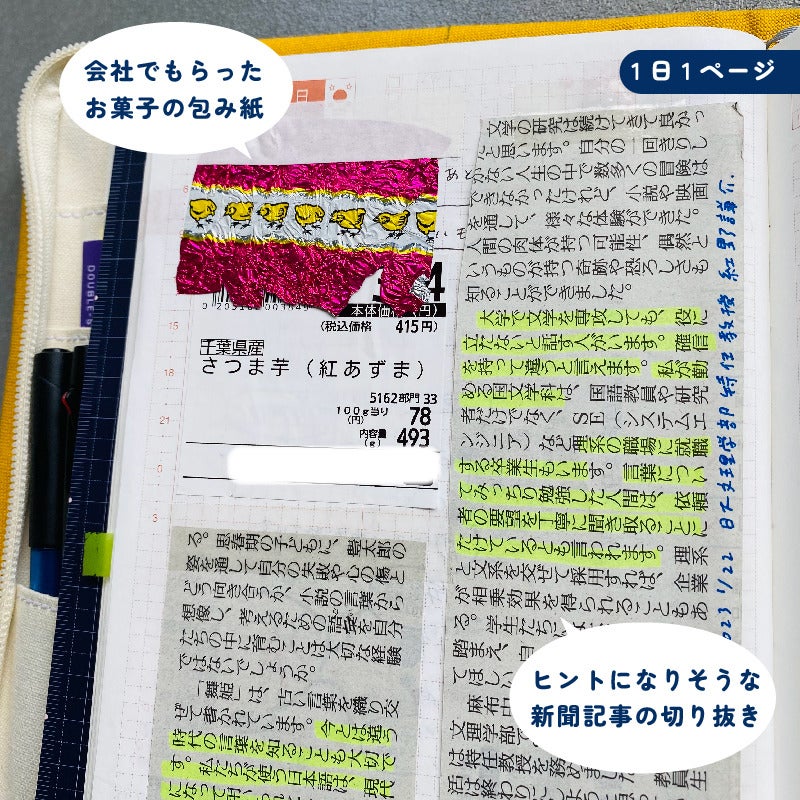 会社でもらった
お菓子の包み紙
1日1ページ
日
DOUBLE
6
15
18
21
0
3
4
本体価格(円)
(税込価格 415円)
千葉県産
さつま芋(紅あずま)
5162部門33
100g当り(円) 78
内容量(g) 493
文学の研究は続けてきて良かっ
たと思います。自分の一回きりし
かない人生の中で数多くの冒険は
できなかったけれど、小説や映画
を通して、様々な体験ができた。
人間の肉体が持つ可能性、偶然と
いうものが持つ奇跡や恐ろしさも
知ることができました。
大学で文学を専攻しても、役に
立たないと話す人がいます。確信
を持って違うと言えます。私が勤
める国文学科は、国語教員や研究
者だけでなく、SE(システムエ
ンジニア)など理系の職場に就職
する卒業生もいます。言葉につい
てみっちり勉強した人間は、依頼
者の要望を丁寧に聞き取ることに
たけているとも言われます。理系
と文系を交ぜて採用すれば、企業
が相乗効果を得られることもあ
る。学生たちに
踏まえ、自
てほしい
麻布
文理学部で
は特任教授を務めました
教員生
活は終わりに
2023 1/22 日大文理学部 特任教授 紅野謙介
る。思春期の子どもに、豊太郎の
姿を通して自分の失敗や心の傷と
どう向き合うか、小説の言葉から
想像し、考えるための語彙を自分
たちの中に育むことは大切な経験
ではないでしょうか。
「舞姫」は、古い言葉を織り交
ぜて書かれています。今とは違う
時代の言葉を知ることも大切で
す。私たちが使う日本語は、現代
になって
ヒントになりそうな
新聞記事の切り抜き